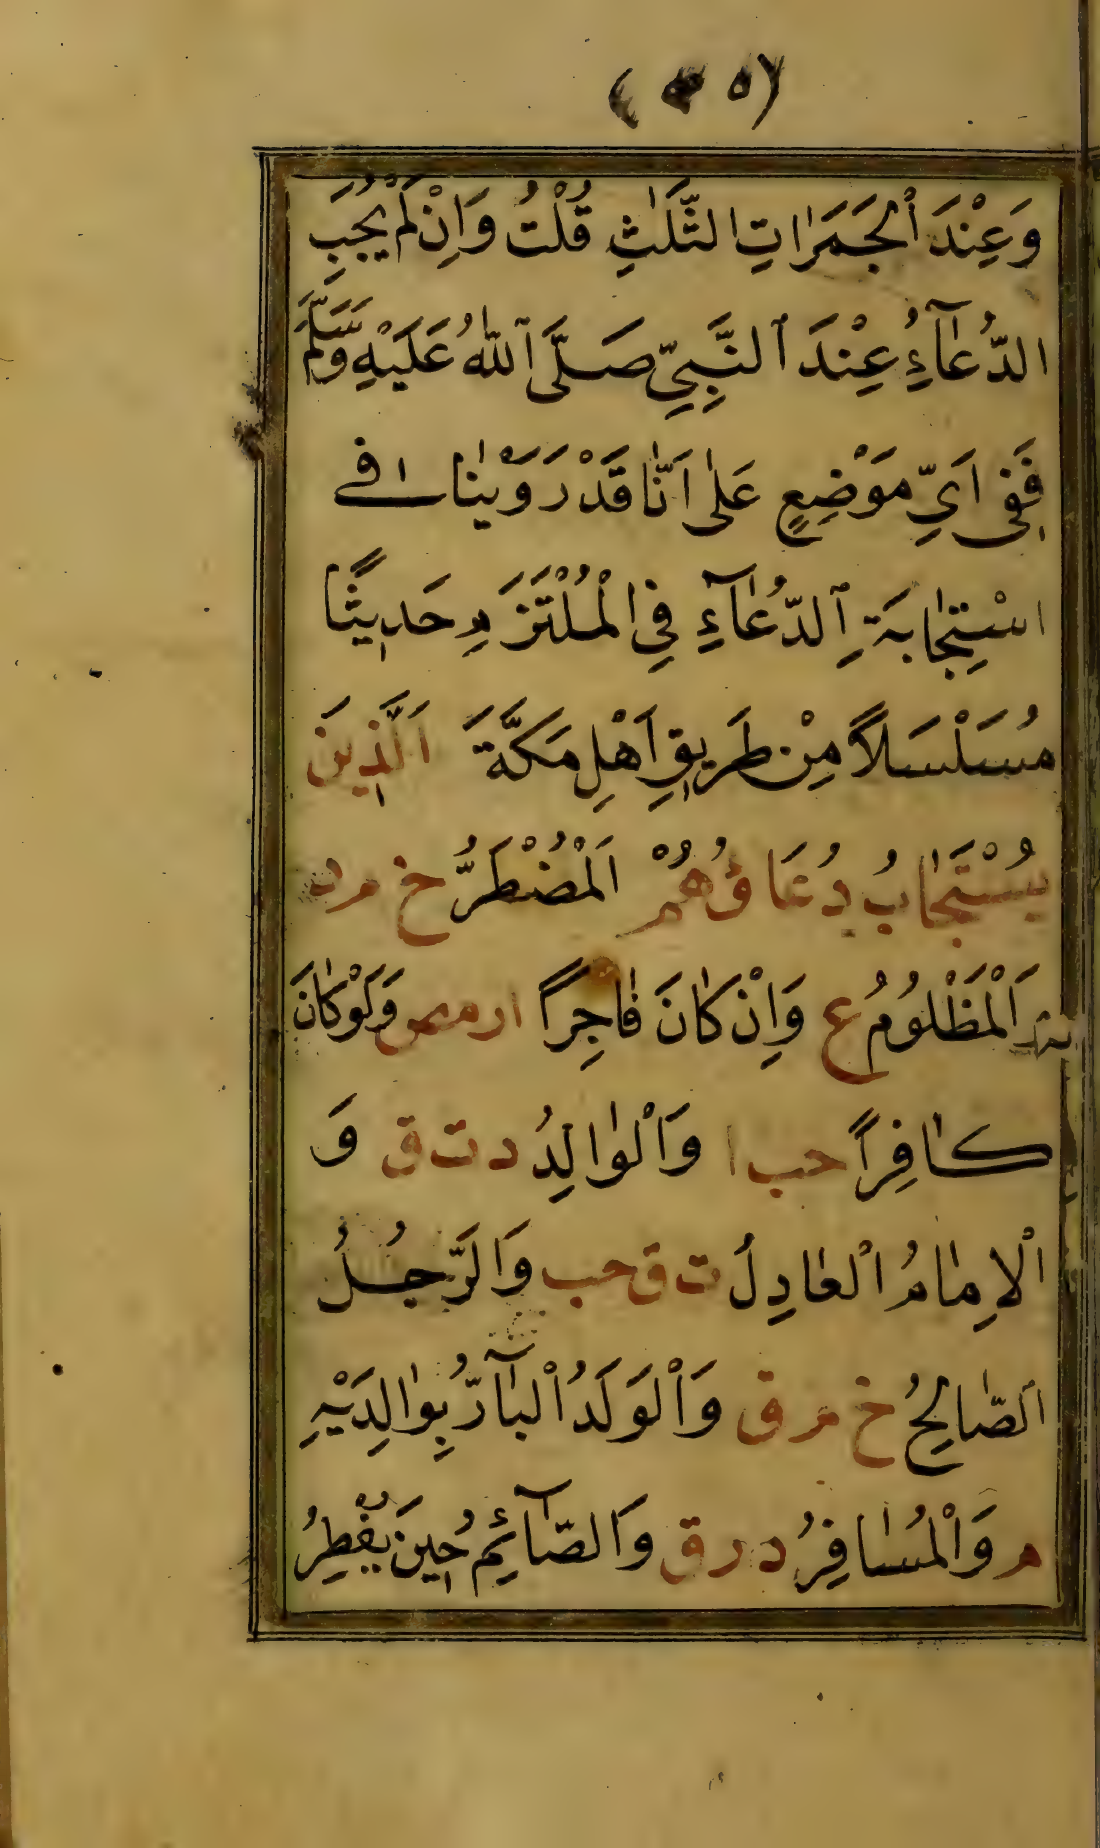 وَعِنْدَ ٱلْجَمَرَاتِ الثَّلٰثِ قُلْتُ وَاِنْ لَمْ يُجَبِ
الدُّعَآءُ عِنْدَ ٱلنَّبِيِّ صَلَّى ٱللّٰهُ عَلَيْهِ وَسَلَّمَ
فَفِى اَيِّ مَوْضِعٍ عَلٰى اَنَّا قَدْ رَوَيْنَا فِى
اسْتِجَابَةِ ٱلدُّعَآءِ فِي الْمُلْتَزَمِ حَدِيثًا
مُسَلْسَلاً مِنْ طَرِيقِ اَهْلِ مَكَّةَ اَلَّذِينَ
يُسْتَجَابُ دُعَاؤُهُمْ اَلْمُضْطَرُّ خ م د
اَلْمَظْلُومُ ع وَاِنْ كَانَ فَاجِرًا ا ر مص وَلَوْ كَانَ
كَافِرًا حب ا وَالْوَالِدُ د ت ق وَ
الْاِمَامُ الْعَادِلُ ت ق حب وَالرَّجُلُ
ٱلصَّالِحُ خ م ق وَٱلْوَلَدُ ٱلْبَآرُّ بِوَالِدَيْهِ
م وَالْمُسَافِرُ د ر ق وَالصَّآئِمُ حِينَ يُفْطِرُ